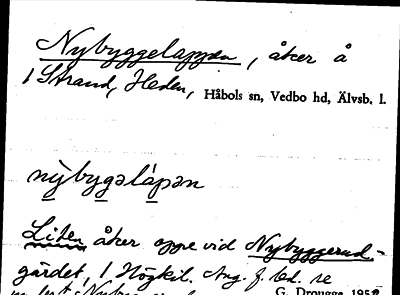 Nybyggelappen, åker å
1 Strand, Heden, Håbols sn, Vedbo hd, Älvsb. l.
nỳbygəlápən
Liten åker oppe vid Nybyggerud-
gärdet, 1 Högkil. Ang. f. led. se
G. Drougge 1952